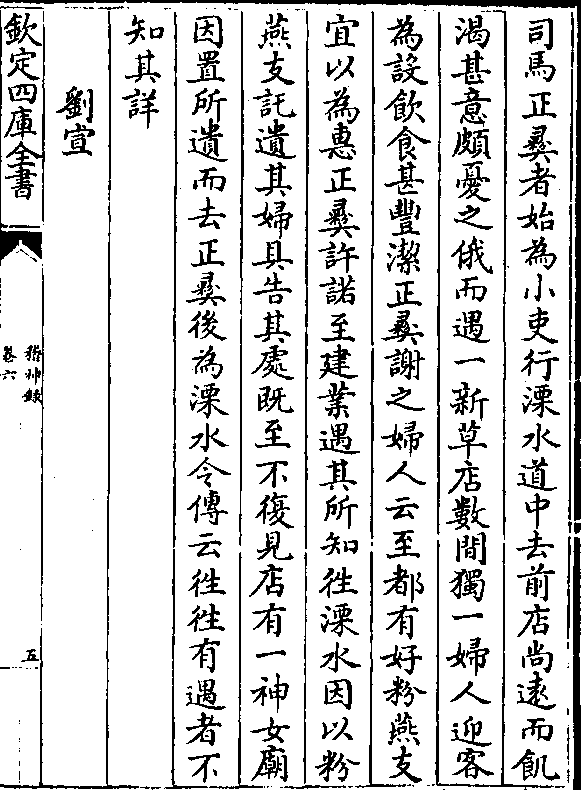 司馬正彝者始為小吏行溧水道中去前店尚遠而飢
渴甚意頗憂之俄而遇一新草店數間獨一婦人迎客
為設飲食甚豐潔正彝謝之婦人云至都有好粉燕支
宜以為惠正彝許諾至建業遇其所知徃溧水因以粉
燕支託遺其婦具告其處既至不復見店有一神女廟
因置所遺而去正彝後為溧水令傳云徃徃有遇者不
知其詳
劉宣
欽定四庫全書
稽神録
卷六
五